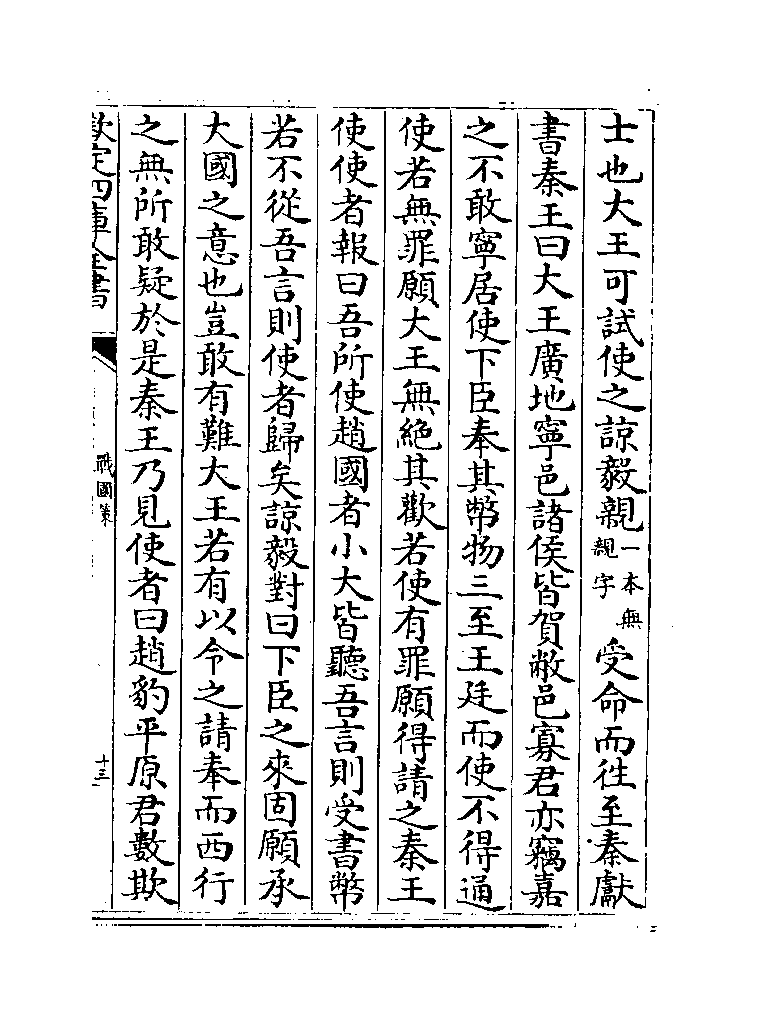 士也大王可試使之諒毅親一本無親字受命而徃至秦獻
書秦王曰大王廣地寧邑諸侯皆賀敝邑寡君亦竊嘉
之不敢寧居使下臣奉其幣物三至王廷而使不得通
使若無罪願大王無絶其歡若使有罪願得請之秦王
使使者報曰吾所使趙國者小大皆聽吾言則受書幣
若不從吾言則使者歸矣諒毅對曰下臣之來固願承
大國之意也豈敢有難大王若有以令之請奉而西行
之無所敢疑於是秦王乃見使者曰趙豹平原君數欺
欽定四庫全書
戰國策
十三